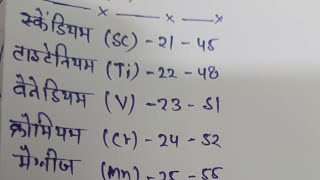 — x — x — x
स्कैंडियम (Sc) - 21 - 45
टाइटेनियम (Ti) - 22 - 48
वैनेडियम (V) - 23 - 51
क्रोमियम (Cr) - 24 - 52
मैंगनीज (Mn) - 25 - 55